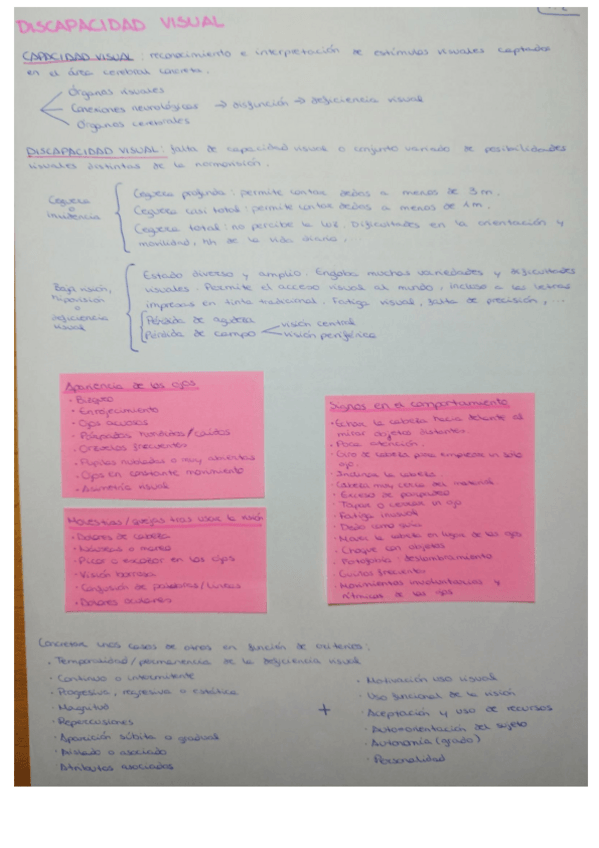 DISCAPACIDAD VISUAL
CAPACIDAD VISUAL: reconocimiento e interpretación de estímulos visuales captados
en el área cerebral concreta.
Órganos visuales
Conexiones neurológicas → disfunción → deficiencia visual
Órganos cerebrales
DISCAPACIDAD VISUAL: falta de capacidad visual o conjunto variado de posibilidades
visuales distintas de la normovisión.
Ceguera
o
invidencia
Ceguera profunda: permite contar dedos a menos de 3m.
Ceguera casi total: permite contar dedos a menos de 1m.
Ceguera total: no percibe la luz. Dificultades en la orientación y
movilidad, hh de la vida diaria, ...
Baja visión,
hipovisión
o
deficiencia
visual
Estado diverso y amplio. Engloba muchas variedades y dificultades
visuales. Permite el acceso visual al mundo, incluso a las letras
impresas en tinta tradicional. Fatiga visual, falta de precisión, ...
Pérdida de agudeza
Pérdida de campo
visión central
visión periférica
Apariencia de los ojos
· Bizqueo
· Enrojecimiento
· Ojos acuosos
· Párpados hundidos/caídos
· Orzuelos frecuentes
· Pupilas nubladas o muy abiertas
· Ojos en constante movimiento
· Asimetría visual
Molestias/quejas tras usar la visión
· Dolores de cabeza
· Náuseas o mareo
· Picor o escozor en los ojos
· Visión borrosa
· Confusión de palabras/líneas
· Dolores oculares
Signos en el comportamiento
· Echar la cabeza hacia delante al
mirar objetos distantes
· Poca atención.
· Giro de cabeza para emplear un solo
ojo.
· Inclinar la cabeza
· Cabeza muy cerca del material
· Exceso de parpadeo
· Tapar o cerrar un ojo
· Fatiga inusual
· Dedo como guía
· Mover la cabeza en lugar de los ojos
· Choque con objetos
· Fotofobia: deslumbramiento
· Guiños frecuentes
· Movimientos involuntarios y
rítmicos de los ojos
Concretar unos casos de otros en función de criterios:
· Temporalidad/permanencia de la deficiencia visual
· Continuo o intermitente
· Progresiva, regresiva o estática
· Magnitud
· Repercusiones
· Aparición súbita o gradual
· Aislado o asociado
· Atributos asociados
+
· Motivación uso visual
· Uso funcional de la visión
· Aceptación y uso de recursos
· Autoorientación del sujeto
· Autonomía (grado)
· Personalidad